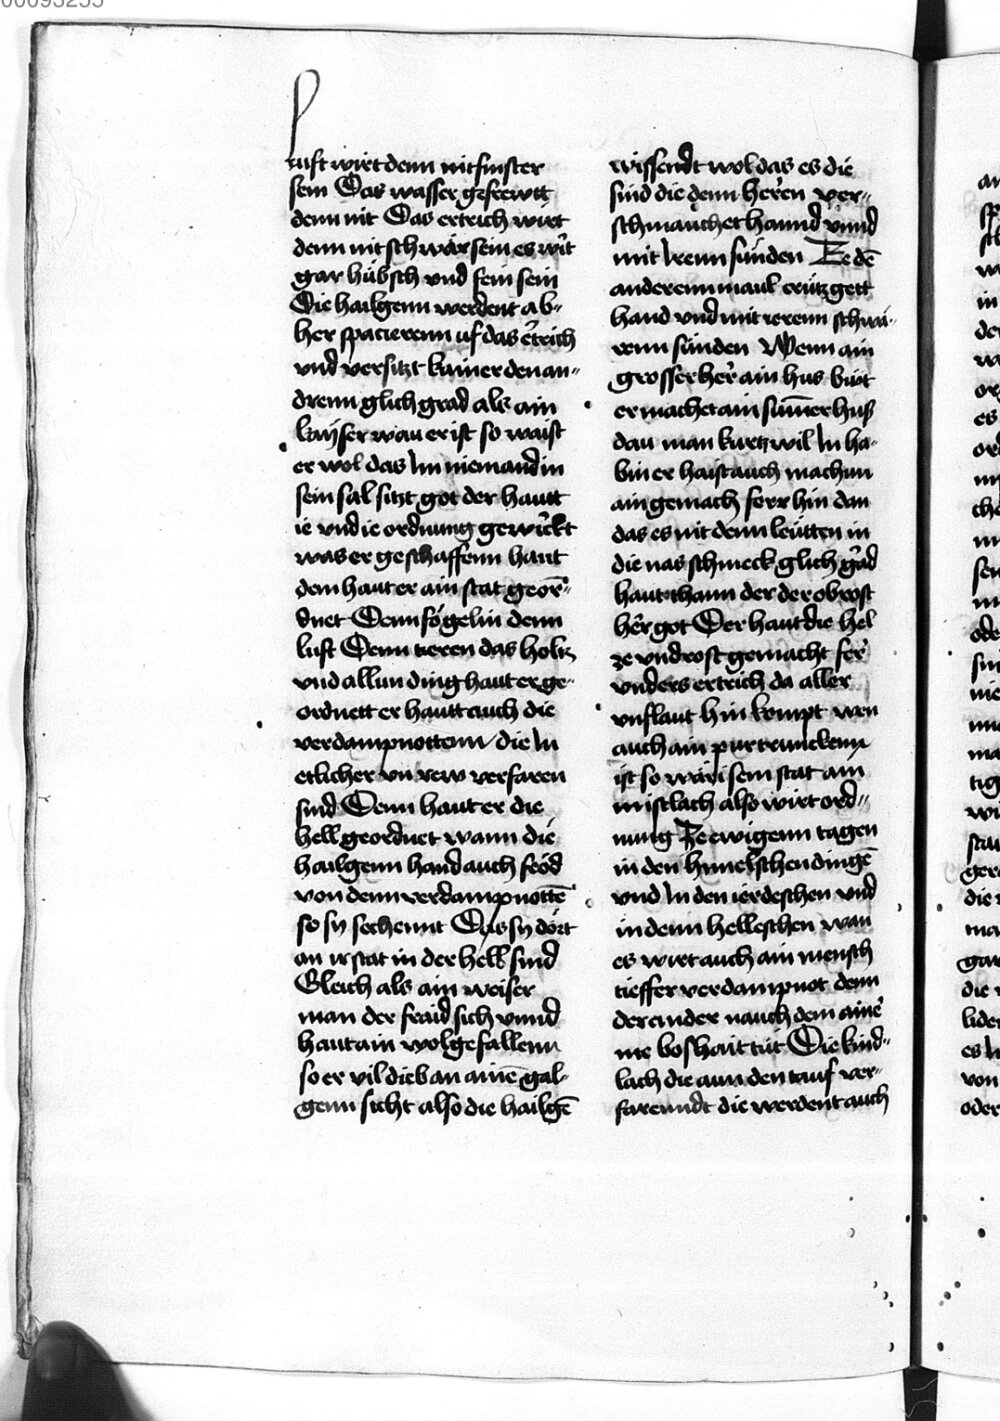 00093255
luft wirt denn nit finster
sein Das wasser gefrewrt
denn nit Das ertrich wirt
denn nit schwär sein es wirt
gar hübsch vnd fein sein
Die hailgenn werdent ab-
her spacierenn uf das ertrich
vnd versitzt kainer den an-
drenn glich grad als ain
kayser wau er ist so waist
er wol das Im niemand in
sein sal sitzt got der hautt
ie vnd ie ordnung gewirckt
was er geschaffenn haut
dem haut er ain stat geor-
dnet Denn fögelin denn
luft Denn tieren das holtz
vnd allun ding haut er ge-
ordnett er hautt auch die
verdampnottenn die In
etlicher vn rew verfaren
sind Denn haut er die
hell geordnet wann die
hailgenn hand auch fröd
von denn verdampnottē
so sy sechennt Das sy dört
an ir stat in der hell sind
Gleich als ain weiser
man der fraid sich vnnd
haut ain wolgefallenn
so er vil dieb an ainē gal-
genn sicht also die hailgē
wissendt wol das es die
sind die denn herren ver-
schmauchet hannd vnnd
mit Irenn sünden Ze dē
anderenn maul crützgett
hand vnd mit ierenn schwä-
renn sünden Wenn ain
grosser her ain hus buwt
er machet ain sum̄er hus
dau man kurtzwil In ha-
bin er haist auch machun
ain gemach ferr hin dan
das es nit denn leütten in
die nas schmeck glich grad
haut thann der der obrost
her got Der haut die hel
ze vndrost gemacht fer
vnders ertrich da aller
vnflaut hin kompt wen
auch ain pur trunckenn
ist so wäri sein stat ain
mistlach also wirt ord-
nung Ze ewigenn tagen
in den himelschen dingē
vnd In den ierdeschen vnd
in denn helleschen wan
es wirt auch ain mensch
tieffer verdampnot denn
der ander nauch dem ainer
me boshait tüt Die kind-
lach die aun den tauf ver-
farenndt die werdent auch